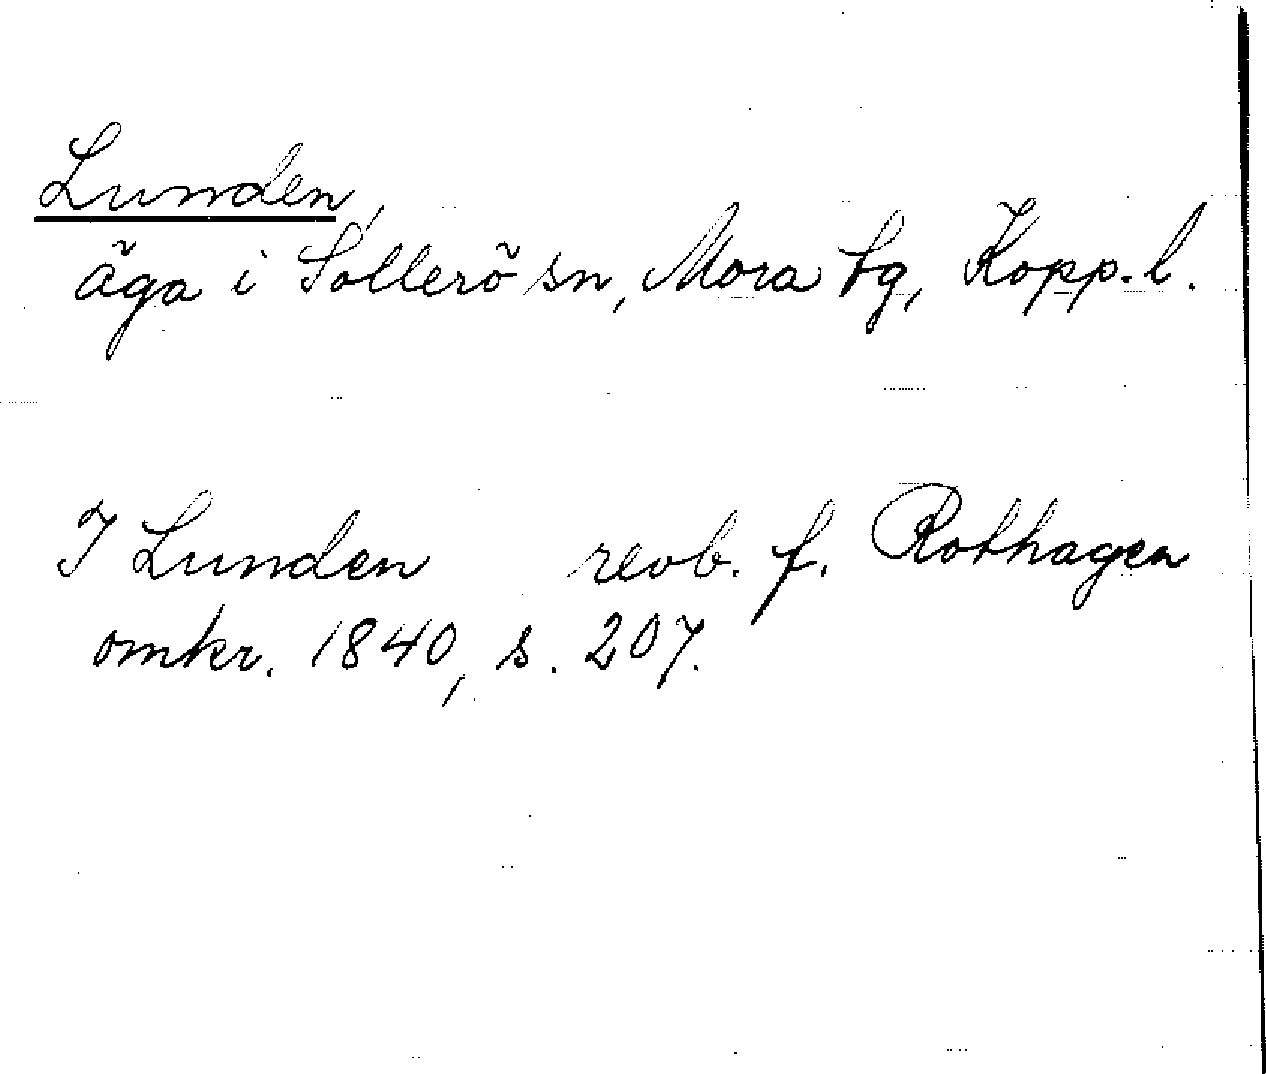 Lunden,
äga i Sollerö sn, Mora tg, Kopp. l.
I Lunden revb. f. Rothagen
omkr. 1840, s. 207.